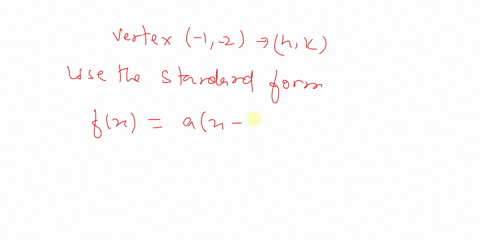 vertex (-1,-2) → (h,k)
Use the standard form
f(x) = a(x-